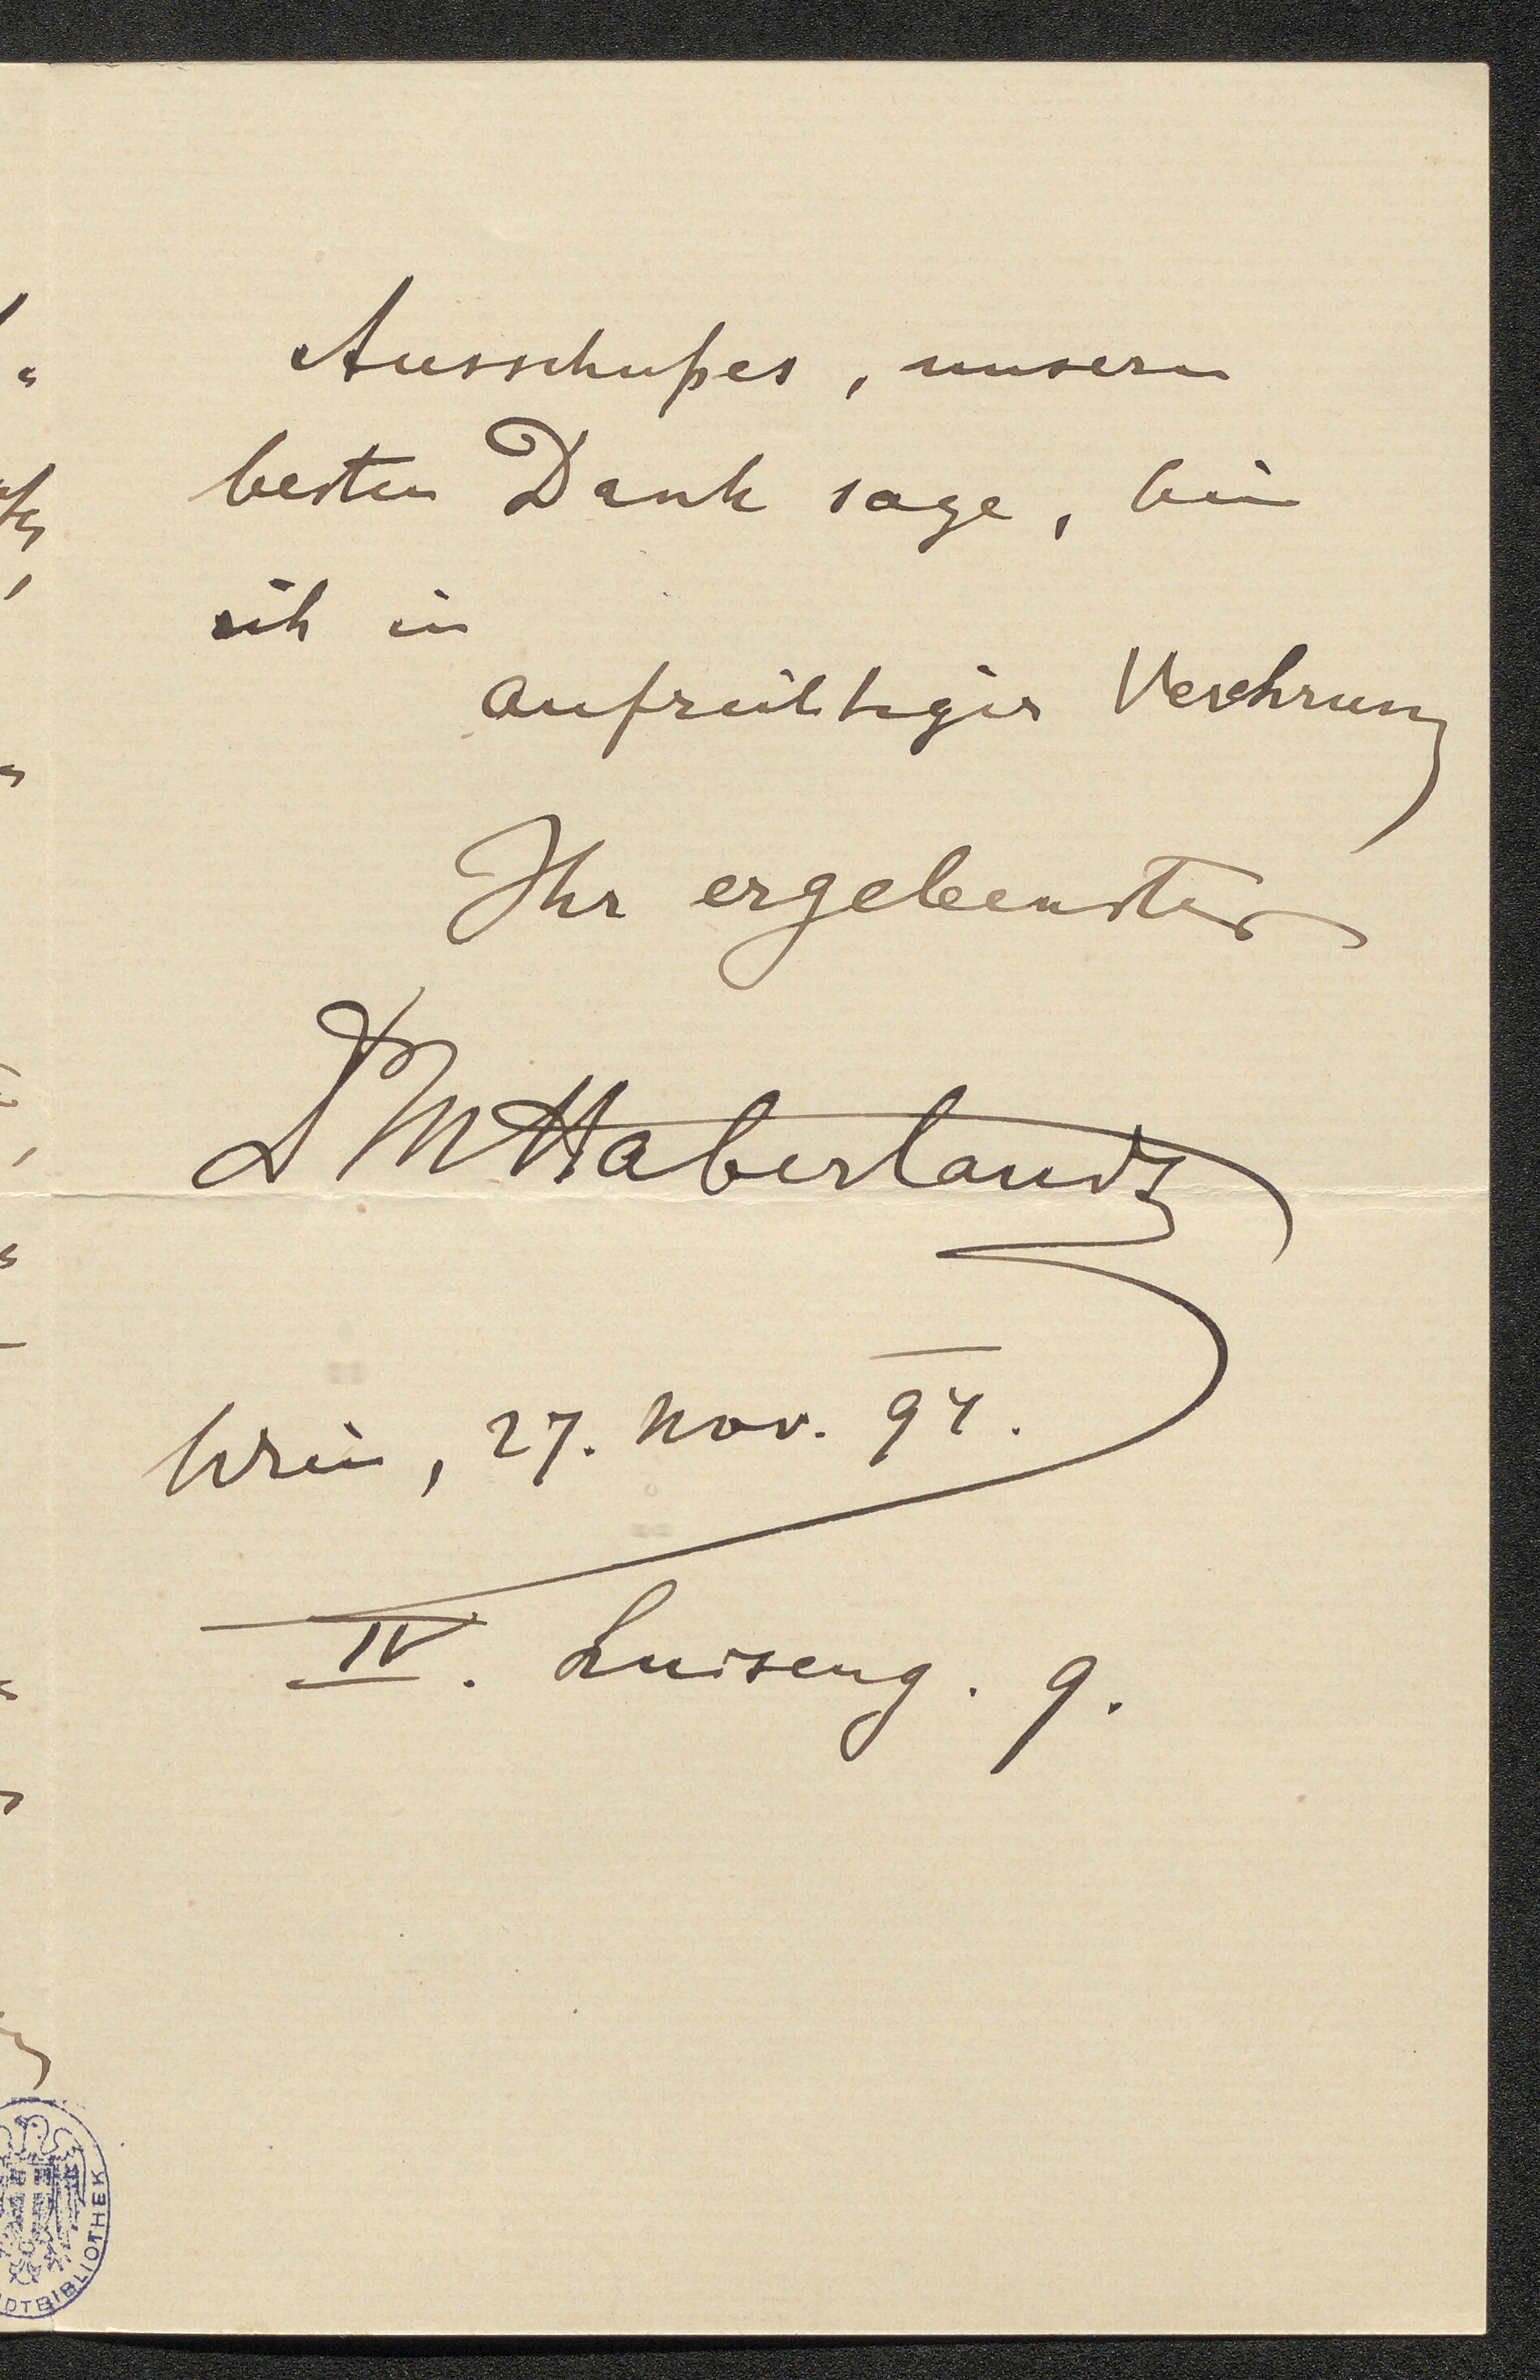 Ausschußes, unsern
besten Dank sage, bin
ich in
aufrichtiger Verehrung
Ihr ergebenster
Dr M Haberlandt
Wien, 27. Nov. 94.
IV. Luiseng. 9.
DTBIBLIOTHEK